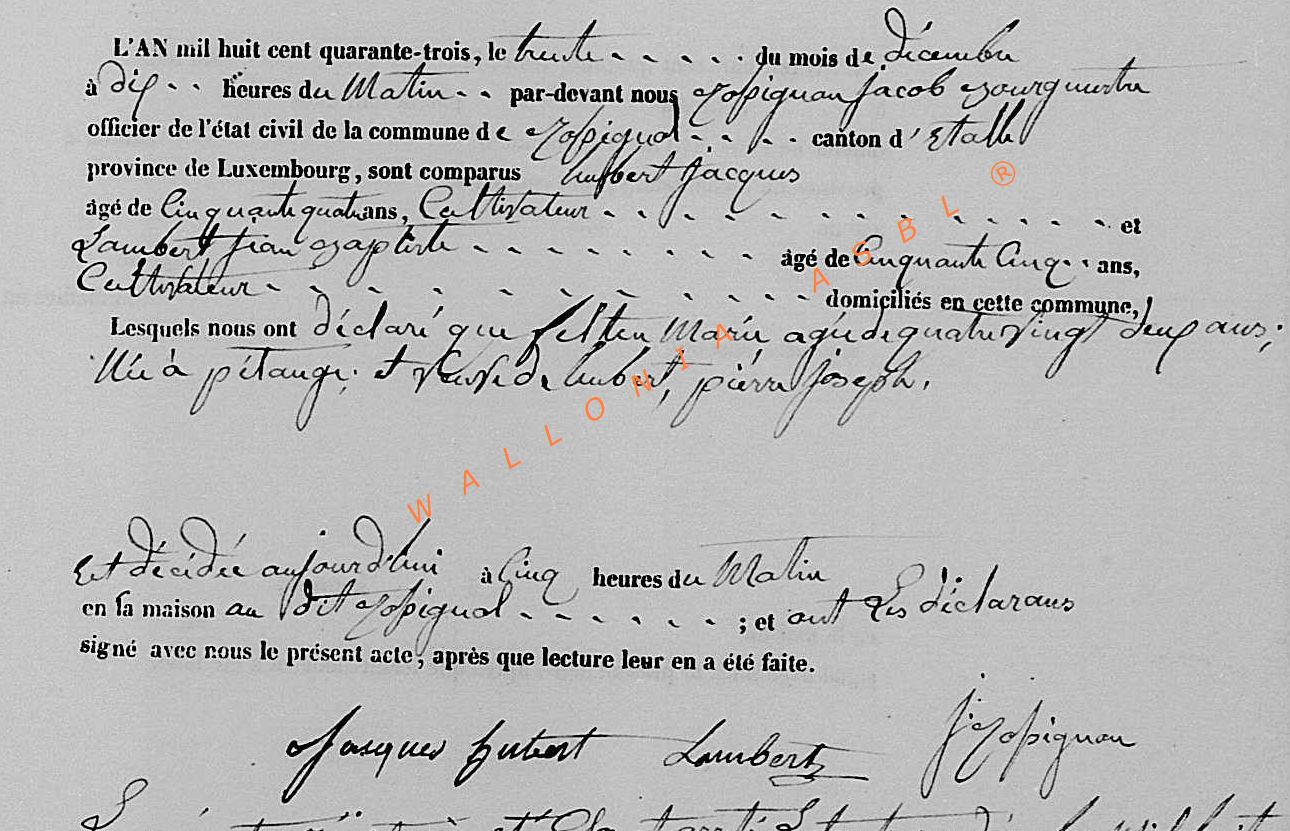 L'AN mil huit cent quarante-trois, le trente - - - - - du mois de décembre
à dix - - heures du Matin - - par-devant nous Rossignon Jacob Bourguestre
officier de l'état civil de la commune de Rossignol - - - - canton d'Etalle
province de Luxembourg, sont comparus hubert Jacques
âgé de Cinquante quatre ans, Cultivateur - - - - - - - - - - - - - et
Lambert jean Baptiste - - - - - - - - âgé de Cinquante Cinq - - ans,
Cultivateur - - - - - - - - - - - - domiciliés en cette commune,
Lesquels nous ont déclaré que felten Marie agée de quatre vingt deux ans;
Née à pétange; et Veuve de hubert, pierre joseph.
Est décédée aujourd'hui à Cinq heures du Matin
en sa maison au dit Rossignol - - - - - - ; et ont Les déclarans
signé avec nous le présent acte, après que lecture leur en a été faite.
Jacques hubert Lambert J. Rossignon
WALLONIA ASBL ®